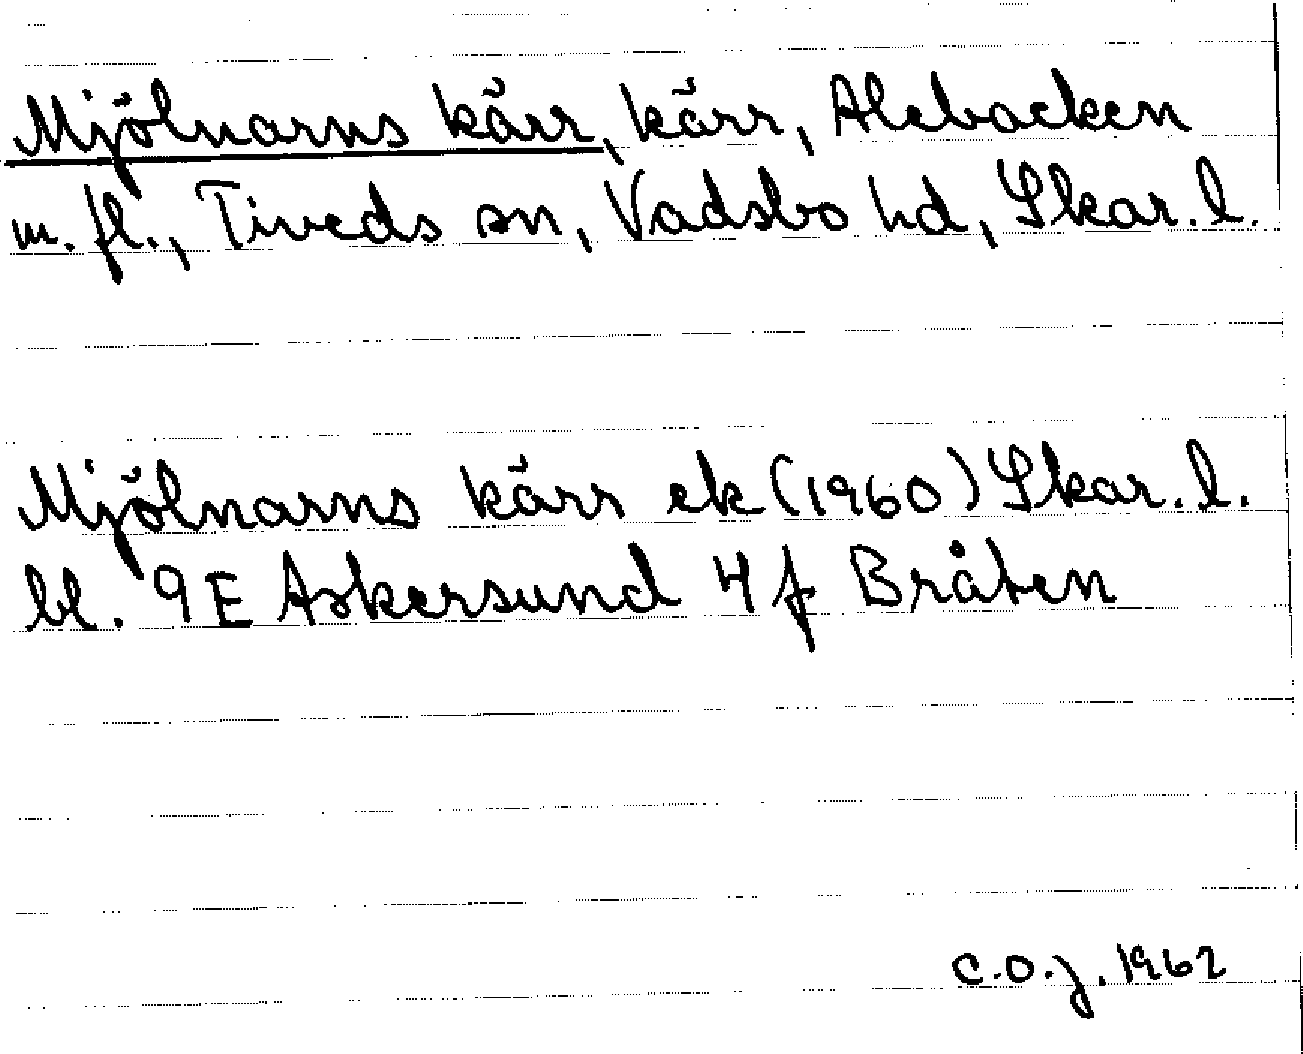 Mjölnarns kärr, kärr, Alebacken
m. fl., Tiveds sn, Vadsbo hd, Skar. l.
Mjölnarns kärr ek (1960) Skar. l.
bl. 9E Askersund 4f Bråten
C.O.J. 1962